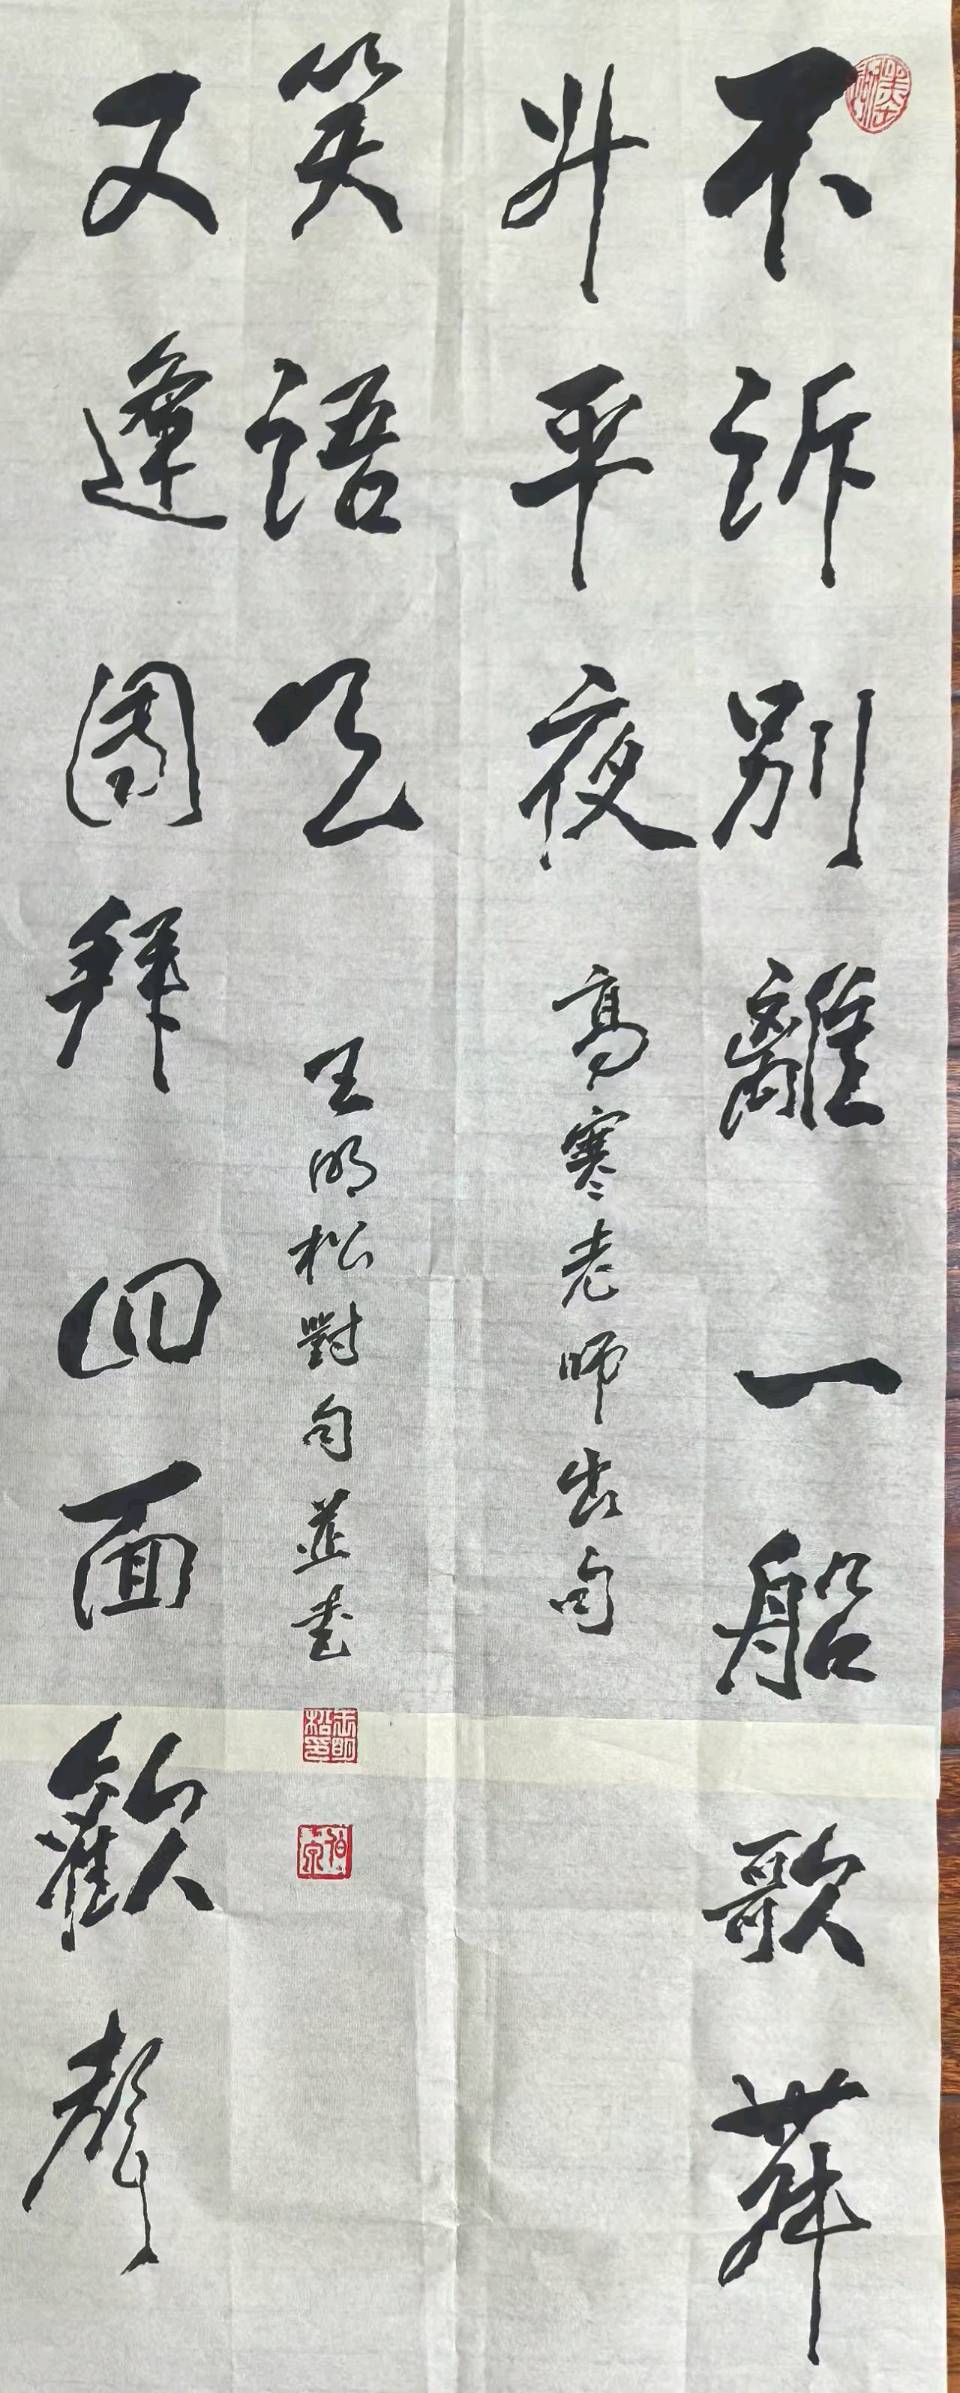 不訴別離一船歌舞
升平夜
高寒老師出句
又逢團拜四面歡聲
笑語天
王明松對句並書
王明松印